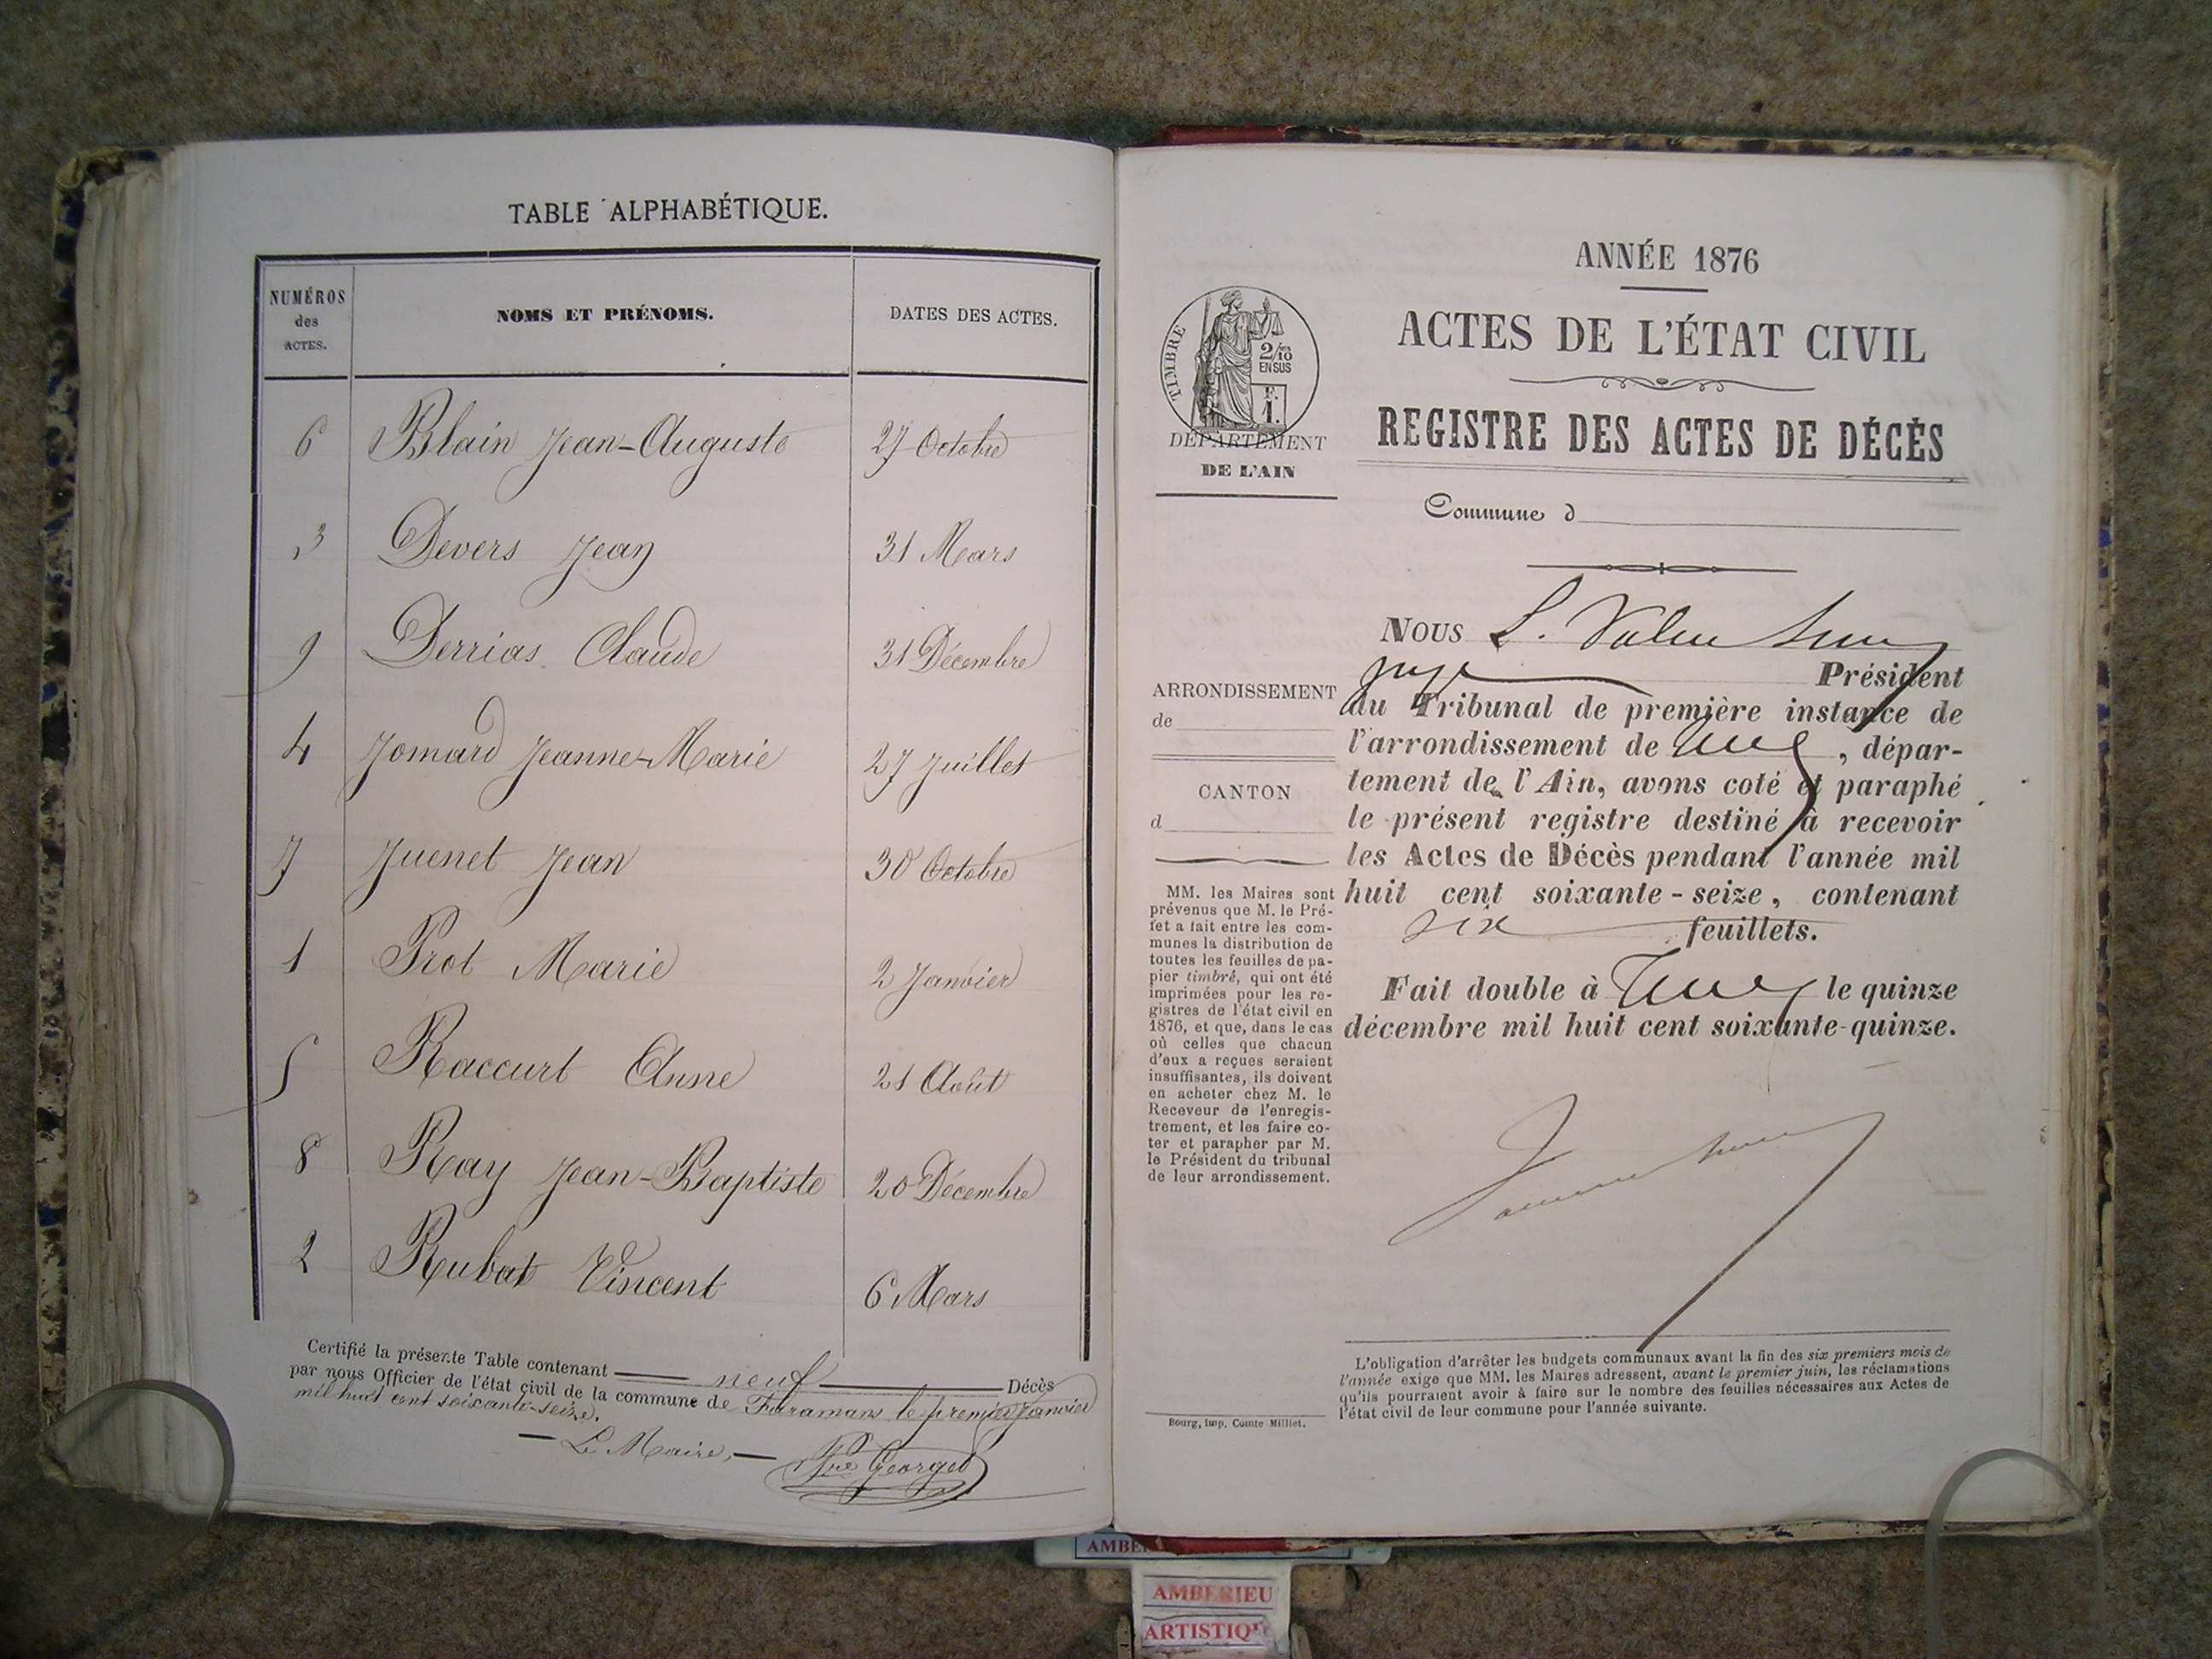 TABLE ALPHABÉTIQUE.
NUMÉROS
des
ACTES.
NOMS ET PRÉNOMS.
DATES DES ACTES.
6 Blain Jean-Auguste 27 Octobre
3 Devers Jean 31 Mars
9 Derrias Claude 31 Décembre
4 Jomard Jeanne-Marie 27 Juillet
7 Juenet Jean 30 Octobre
1 Prot Marie 2 Janvier
5 Raccurt Anne 21 Août
8 Ray Jean-Baptiste 20 Décembre
2 Rubat Vincent 6 Mars
Certifié la présente Table contenant neuf Décès
par nous Officier de l'état civil de la commune de Faramans le premier Janvier
mil huit cent soixante-seize.
Le Maire,
Georget
ANNÉE 1876
ACTES DE L'ÉTAT CIVIL
REGISTRE DES ACTES DE DÉCÈS
TIMBRE
2/10
EN SUS
F.
1.
DÉPARTEMENT
DE L'AIN
Commune d
ARRONDISSEMENT
de
CANTON
d
MM. les Maires sont
prévenus que M. le Pré-
fet a fait entre les com-
munes la distribution de
toutes les feuilles de pa-
pier timbré, qui ont été
imprimées pour les re-
gistres de l'état civil en
1876, et que, dans le cas
où celles que chacun
d'eux a reçues seraient
insuffisantes, ils doivent
en acheter chez M. le
Receveur de l'enregis-
trement, et les faire co-
ter et parapher par M.
le Président du tribunal
de leur arrondissement.
Bourg, imp. Comte Milliet.
NOUS L.
juge Président
du Tribunal de première instance de
l'arrondissement de , dépar-
tement de l'Ain, avons coté et paraphé
le présent registre destiné à recevoir
les Actes de Décès pendant l'année mil
huit cent soixante-seize, contenant
six feuillets.
Fait double à le quinze
décembre mil huit cent soixante-quinze.
L'obligation d'arrêter les budgets communaux avant la fin des six premiers mois de
l'année exige que MM. les Maires adressent, avant le premier juin, les réclamations
qu'ils pourraient avoir à faire sur le nombre des feuilles nécessaires aux Actes de
l'état civil de leur commune pour l'année suivante.
AMBERIEU
ARTISTIQ